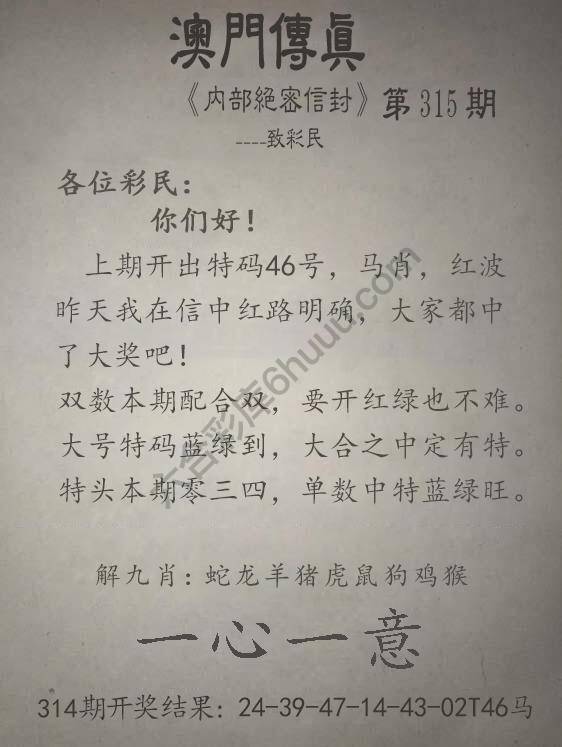 澳門傳眞
《内部絕密信封》第315期
----致彩民
各位彩民：
你们好！
上期开出特码46号，马肖，红波
昨天我在信中红路明确，大家都中
了大奖吧！
双数本期配合双，要开红绿也不难。
大号特码蓝绿到，大合之中定有特。
特头本期零三四，单数中特蓝绿旺。
解九肖：蛇龙羊猪虎鼠狗鸡猴
一心一意
314期开奖结果：24-39-47-14-43-02T46马
六合彩库6huuu.com